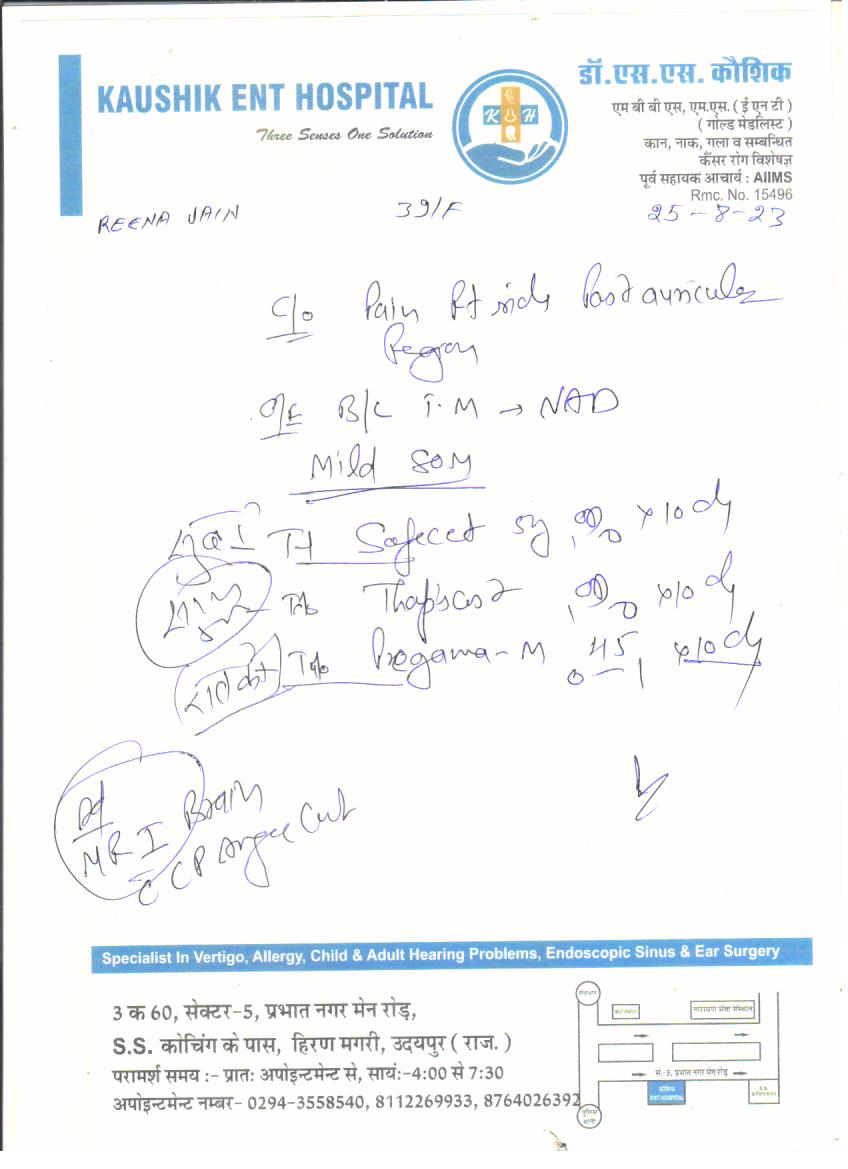 KAUSHIK ENT HOSPITAL
Three Senses One Solution
K H
डॉ.एस.एस. कौशिक
एम बी बी एस, एम.एस. ( ई एन टी )
( गोल्ड मेडलिस्ट )
कान, नाक, गला व सम्बन्धित
कैंसर रोग विशेषज्ञ
पूर्व सहायक आचार्य : AIIMS
Rmc. No. 15496
REENA JAIN 39/F 25-8-23
C/o Pain Rt side Post auricular
Region
O/E B/L T.M → NAD
Mild SOM
Safecet x10
x10
रात को Pregama-M 0-1 x10
MRI Brain
C CP Angle Cut
Specialist In Vertigo, Allergy, Child & Adult Hearing Problems, Endoscopic Sinus & Ear Surgery
3 क 60, सेक्टर-5, प्रभात नगर मेन रोड़,
S.S. कोचिंग के पास, हिरण मगरी, उदयपुर ( राज. )
परामर्श समय :- प्रातः अपोइन्टमेन्ट से, सायं:-4:00 से 7:30
अपोइन्टमेन्ट नम्बर- 0294-3558540, 8112269933, 8764026392
नारायण सेवा संस्थान
से.-5, प्रभात नगर मेन रोड़
कौशिक
ENT HOSPITAL
S.S.